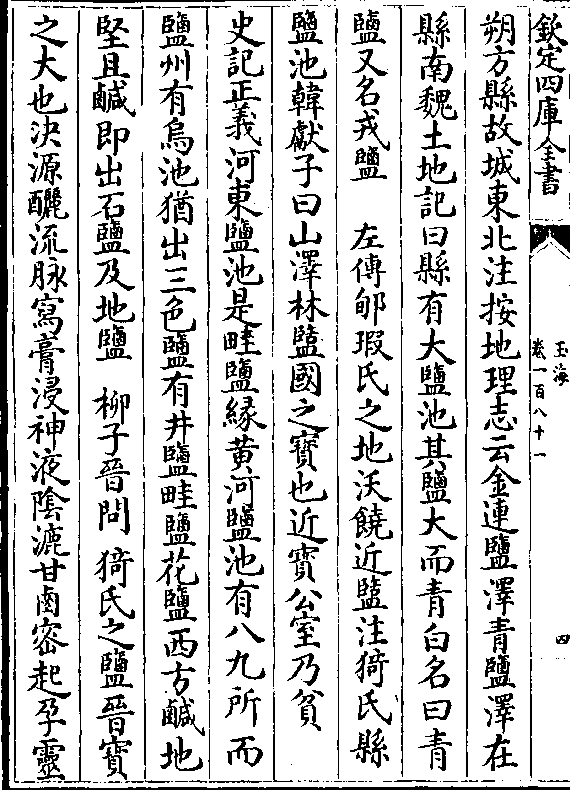 欽定四庫全書
玉海
卷一百八十一
四
朔方縣故城東北注按地理志云金連鹽澤青鹽澤在
縣南魏土地記曰縣有大鹽池其鹽大而青白名曰青
鹽又名戎鹽　左傳郇瑕氏之地沃饒近鹽注猗氏縣
鹽池韓獻子曰山澤林鹽國之寶也近寶公室乃貧
史記正義河東鹽池是畦鹽緣黄河鹽池有八九所而
鹽州有烏池猶出三色鹽有井鹽畦鹽花鹽西方鹹地
堅且鹹即出石鹽及地鹽　柳子晉問猗氏之鹽晉寶
之大也決源釃流脉寫膏浸神液陰漉甘鹵宻起孕靈